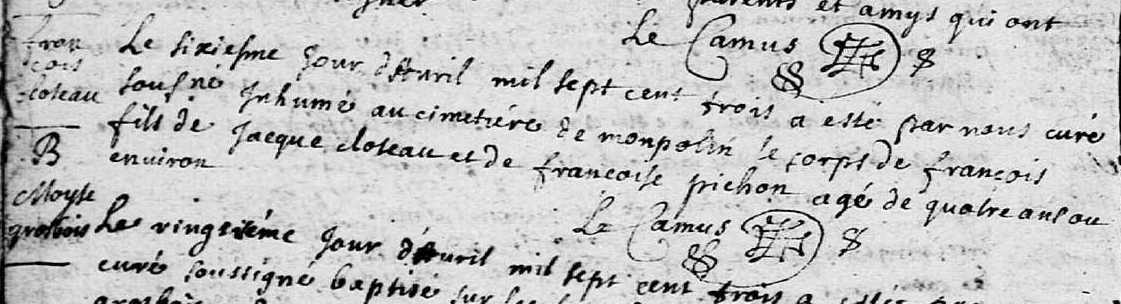 parents et amys qui ont
Le Camus
fran
cois
cloteau
Le sixiesme jour d'Avril mil sept cent trois a esté par nous curé
sousné Inhumé au cimetiére de monpolin le corps de françois
fils de Jacque cloteau et de francoise pichon agé de quatre ans ou
environ
Le Camus
B
Moyse
grosbois
Le vingtiéme Jour d'Avril mil sept cent trois a
curé soussigné baptisé sur les